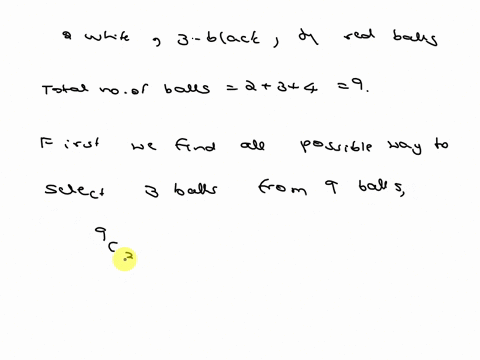 2 white, 3-black, 4 red balls
Total no. of balls = 2+3+4 = 9.
First we find all possible way to
select 3 balls from 9 balls,
9C3